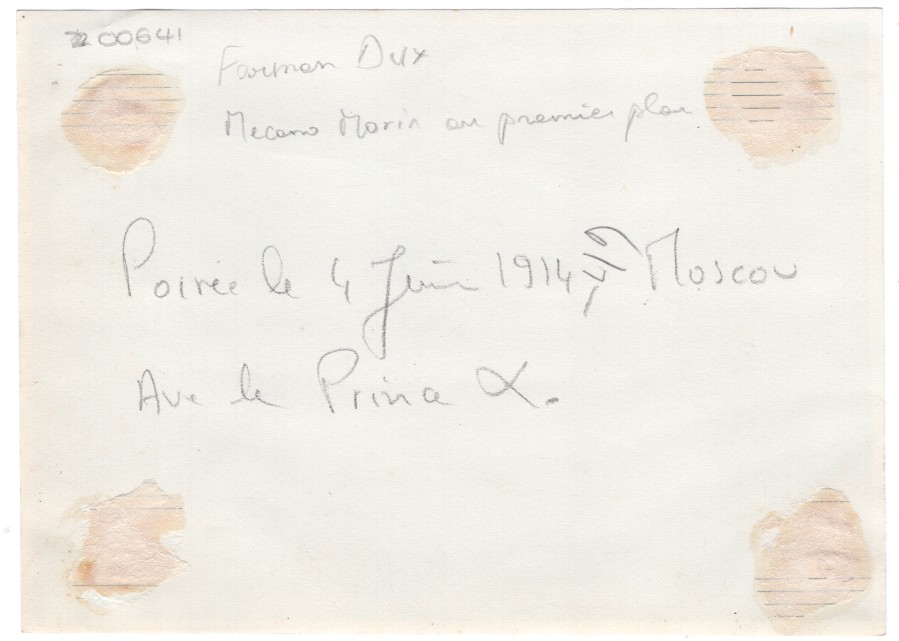 200641
Farman Dux
Mecano Morin au premier plan
Poirée le 4 Juin 1914 Moscou
Ave le Prince X.